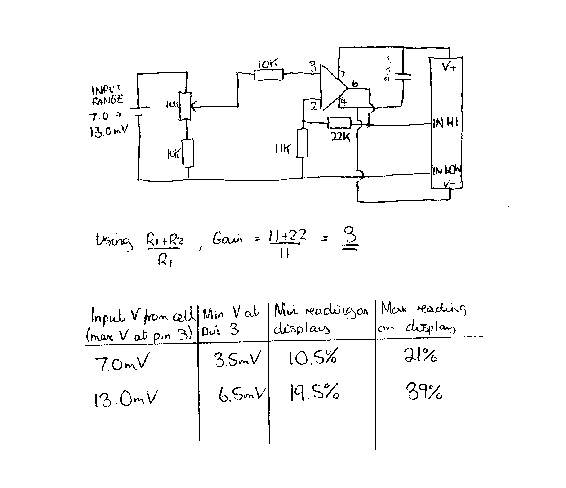 10K
3
7
6
2
4
V+
INPUT
RANGE
7.0 →
13.0mV
10K
10K
11K
22K
IN HI
IN LOW
V-
Using R1+R2 / R1 , Gain = 11+22 / 11 = 3
Input V from cell | Min V at | Min reading on | Max reading
(max V at pin 3) | pin 3 | display | on display
7.0mV | 3.5mV | 10.5% | 21%
13.0mV | 6.5mV | 19.5% | 39%